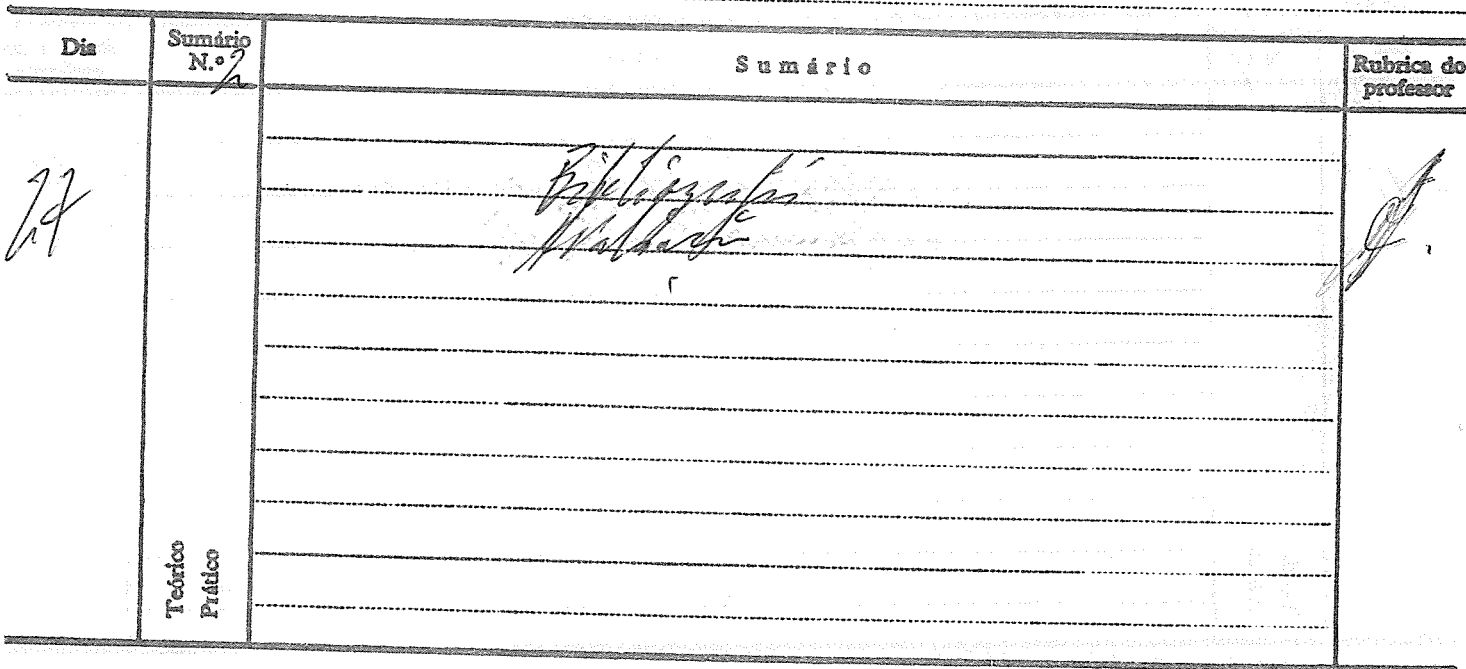 Dia
Sumário N.º 2
Sumário
Rubrica do professor
Bibliografia
Avaliação
Teórico
Prático